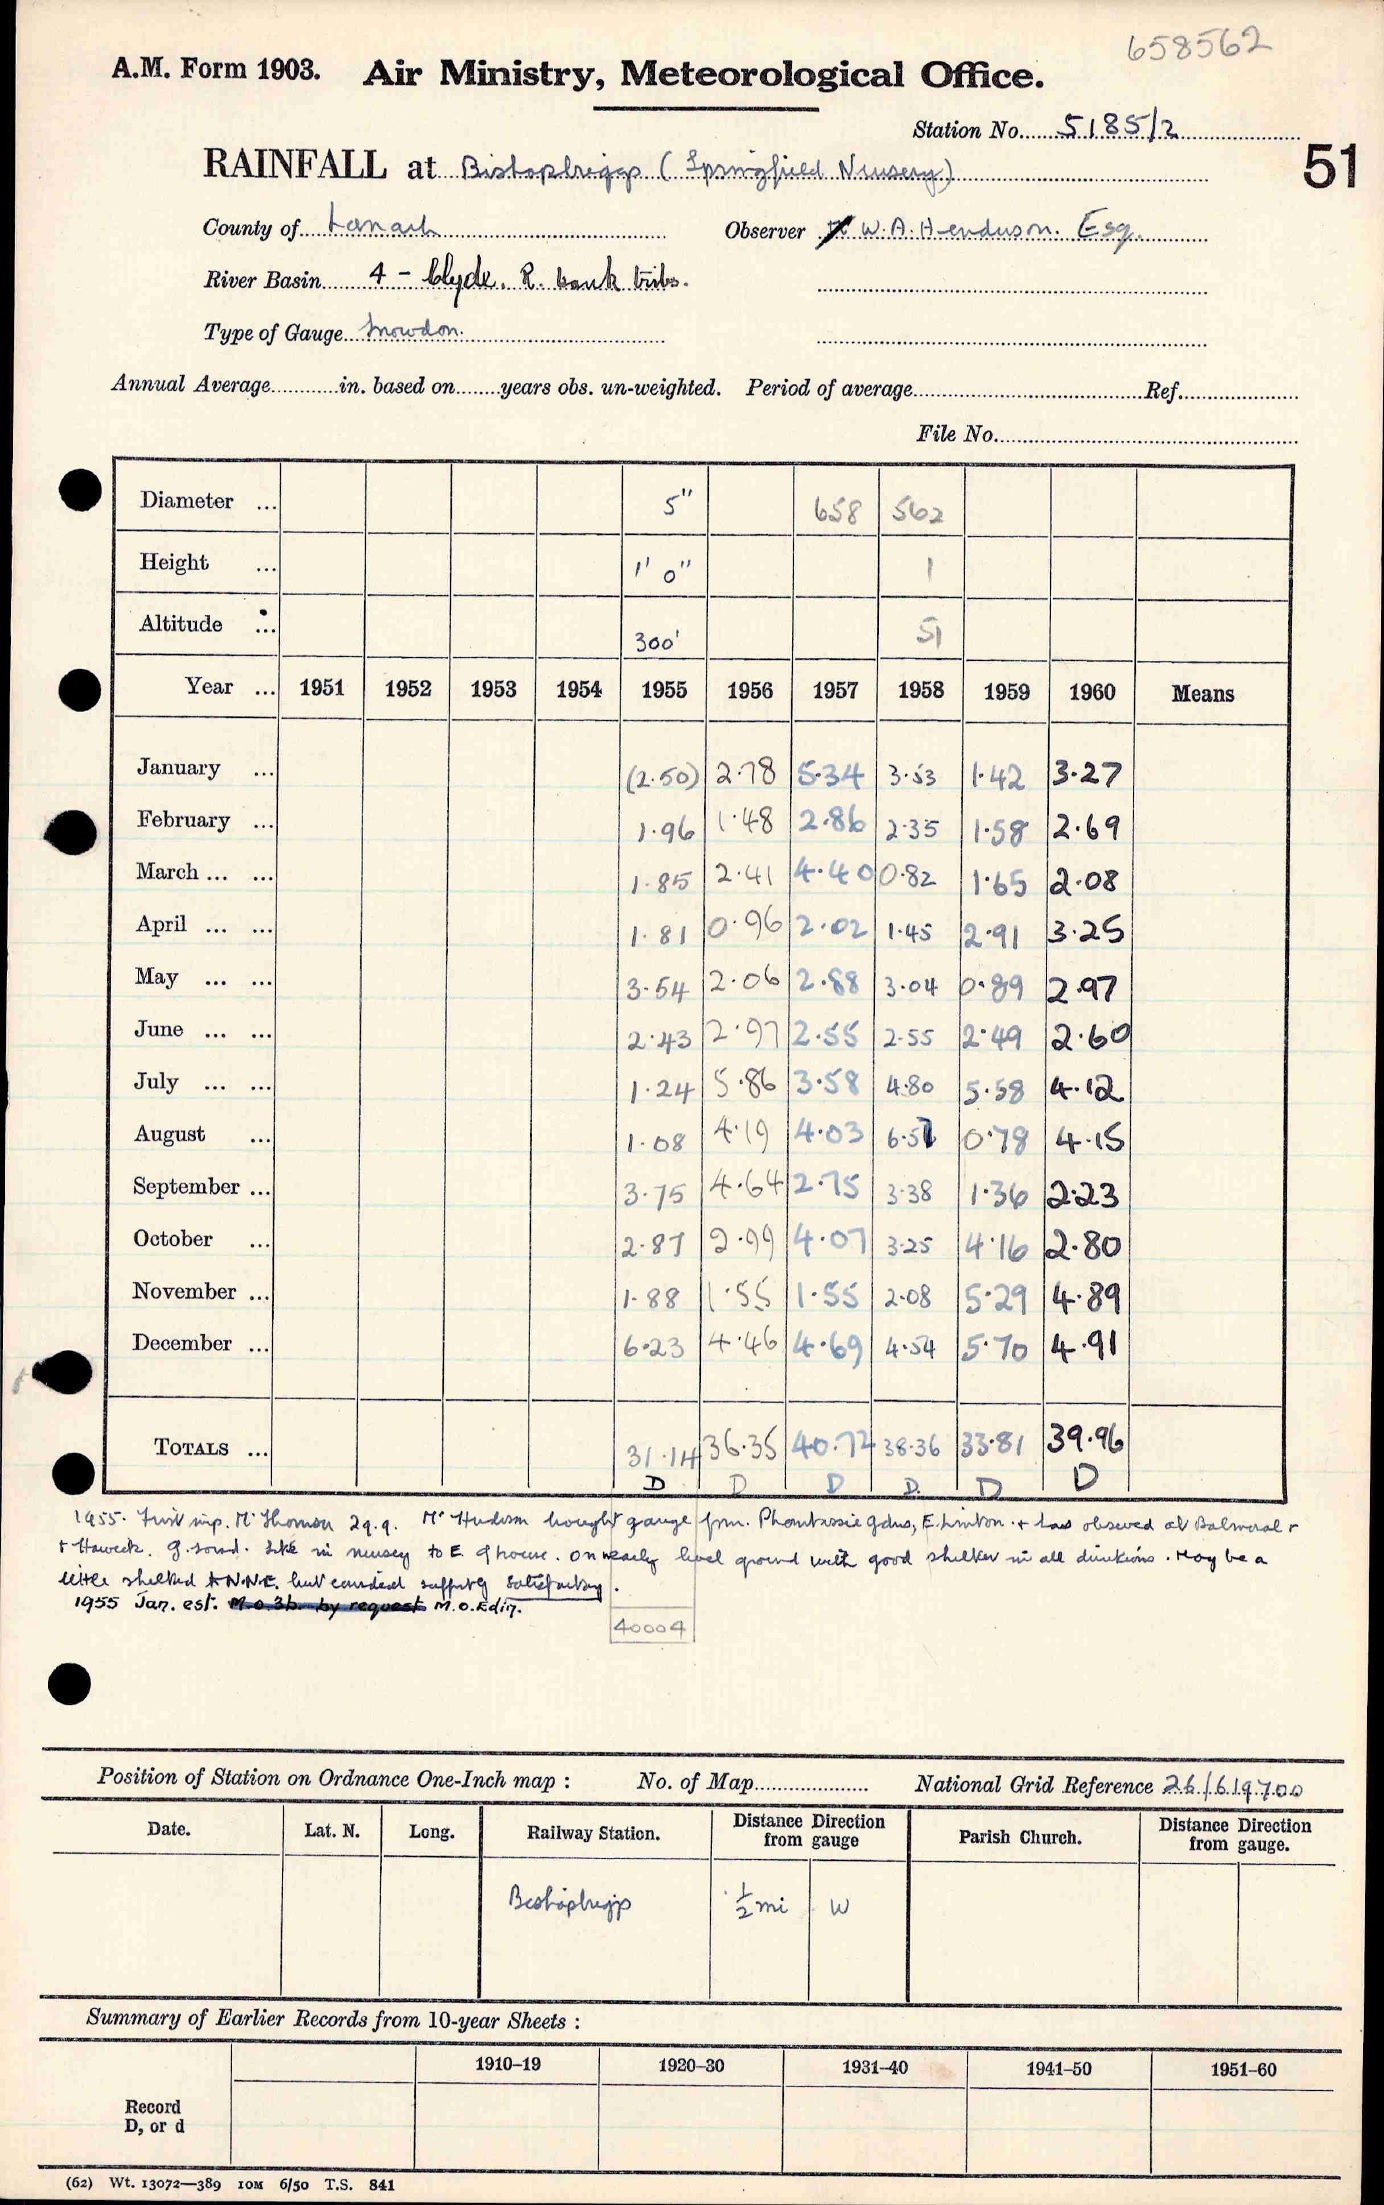 658562
A.M. Form 1903. Air Ministry, Meteorological Office.
Station No. 5185/2
51
RAINFALL at Bishopbriggs (Springfield Nursery)
County of Lanark Observer W.A. Henderson. Esq.
River Basin 4 - Clyde. R. bank tribs.
Type of Gauge Snowdon.
Annual Average in. based on years obs. un-weighted. Period of average Ref.
File No.
Diameter ... 5" 658 562
Height ... 1' 0" 1
Altitude ... 300' 51
Year ... 1951 1952 1953 1954 1955 1956 1957 1958 1959 1960 Means
January ... (2.50) 2.78 5.34 3.53 1.42 3.27
February ... 1.96 1.48 2.86 2.35 1.58 2.69
March ... ... 1.85 2.41 4.40 0.82 1.65 2.08
April ... ... 1.81 0.96 2.02 1.45 2.91 3.25
May ... ... 3.54 2.06 2.88 3.04 0.89 2.97
June ... ... 2.43 2.97 2.55 2.55 2.49 2.60
July ... ... 1.24 5.86 3.58 4.80 5.58 4.12
August ... 1.08 4.19 4.03 6.57 0.78 4.15
September ... 3.75 4.64 2.75 3.38 1.36 2.23
October ... 2.87 2.99 4.07 3.25 4.16 2.80
November ... 1.88 1.55 1.55 2.08 5.29 4.89
December ... 6.23 4.46 4.69 4.54 5.70 4.91
TOTALS ... 31.14 36.35 40.72 38.36 33.81 39.96
D D D D. D D
1955. First insp. Mr Thomson 29.9. Mr Henderson bought gauge from Phantassie Gdns, E. Linton. + has observed at Balmoral +
+ Hawick. G. sound. Site in nursery to E. of house. On nearly level ground with good shelter in all directions. May be a
little sheltered N.N.E. but considered satisfactory.
1955 Jan. est. M.O.3b. by request M.O. Edin.
40004
Position of Station on Ordnance One-Inch map : No. of Map National Grid Reference 26/619700
Date. Lat. N. Long. Railway Station. Distance Direction from gauge Parish Church. Distance Direction from gauge.
Bishopbriggs 1/2 mi W
Summary of Earlier Records from 10-year Sheets :
1910–19 1920–30 1931–40 1941–50 1951–60
Record
D, or d
(62) Wt. 13072—389 10M 6/50 T.S. 841